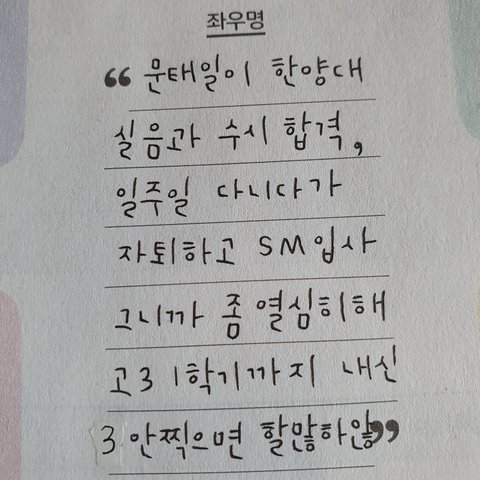 좌우명
“ 문태일이 한양대
실음과 수시 합격,
일주일 다니다가
자퇴하고 SM입사
그니까 좀 열심히해
고3 1학기까지 내신
3 안찍으면 할만하않 ”